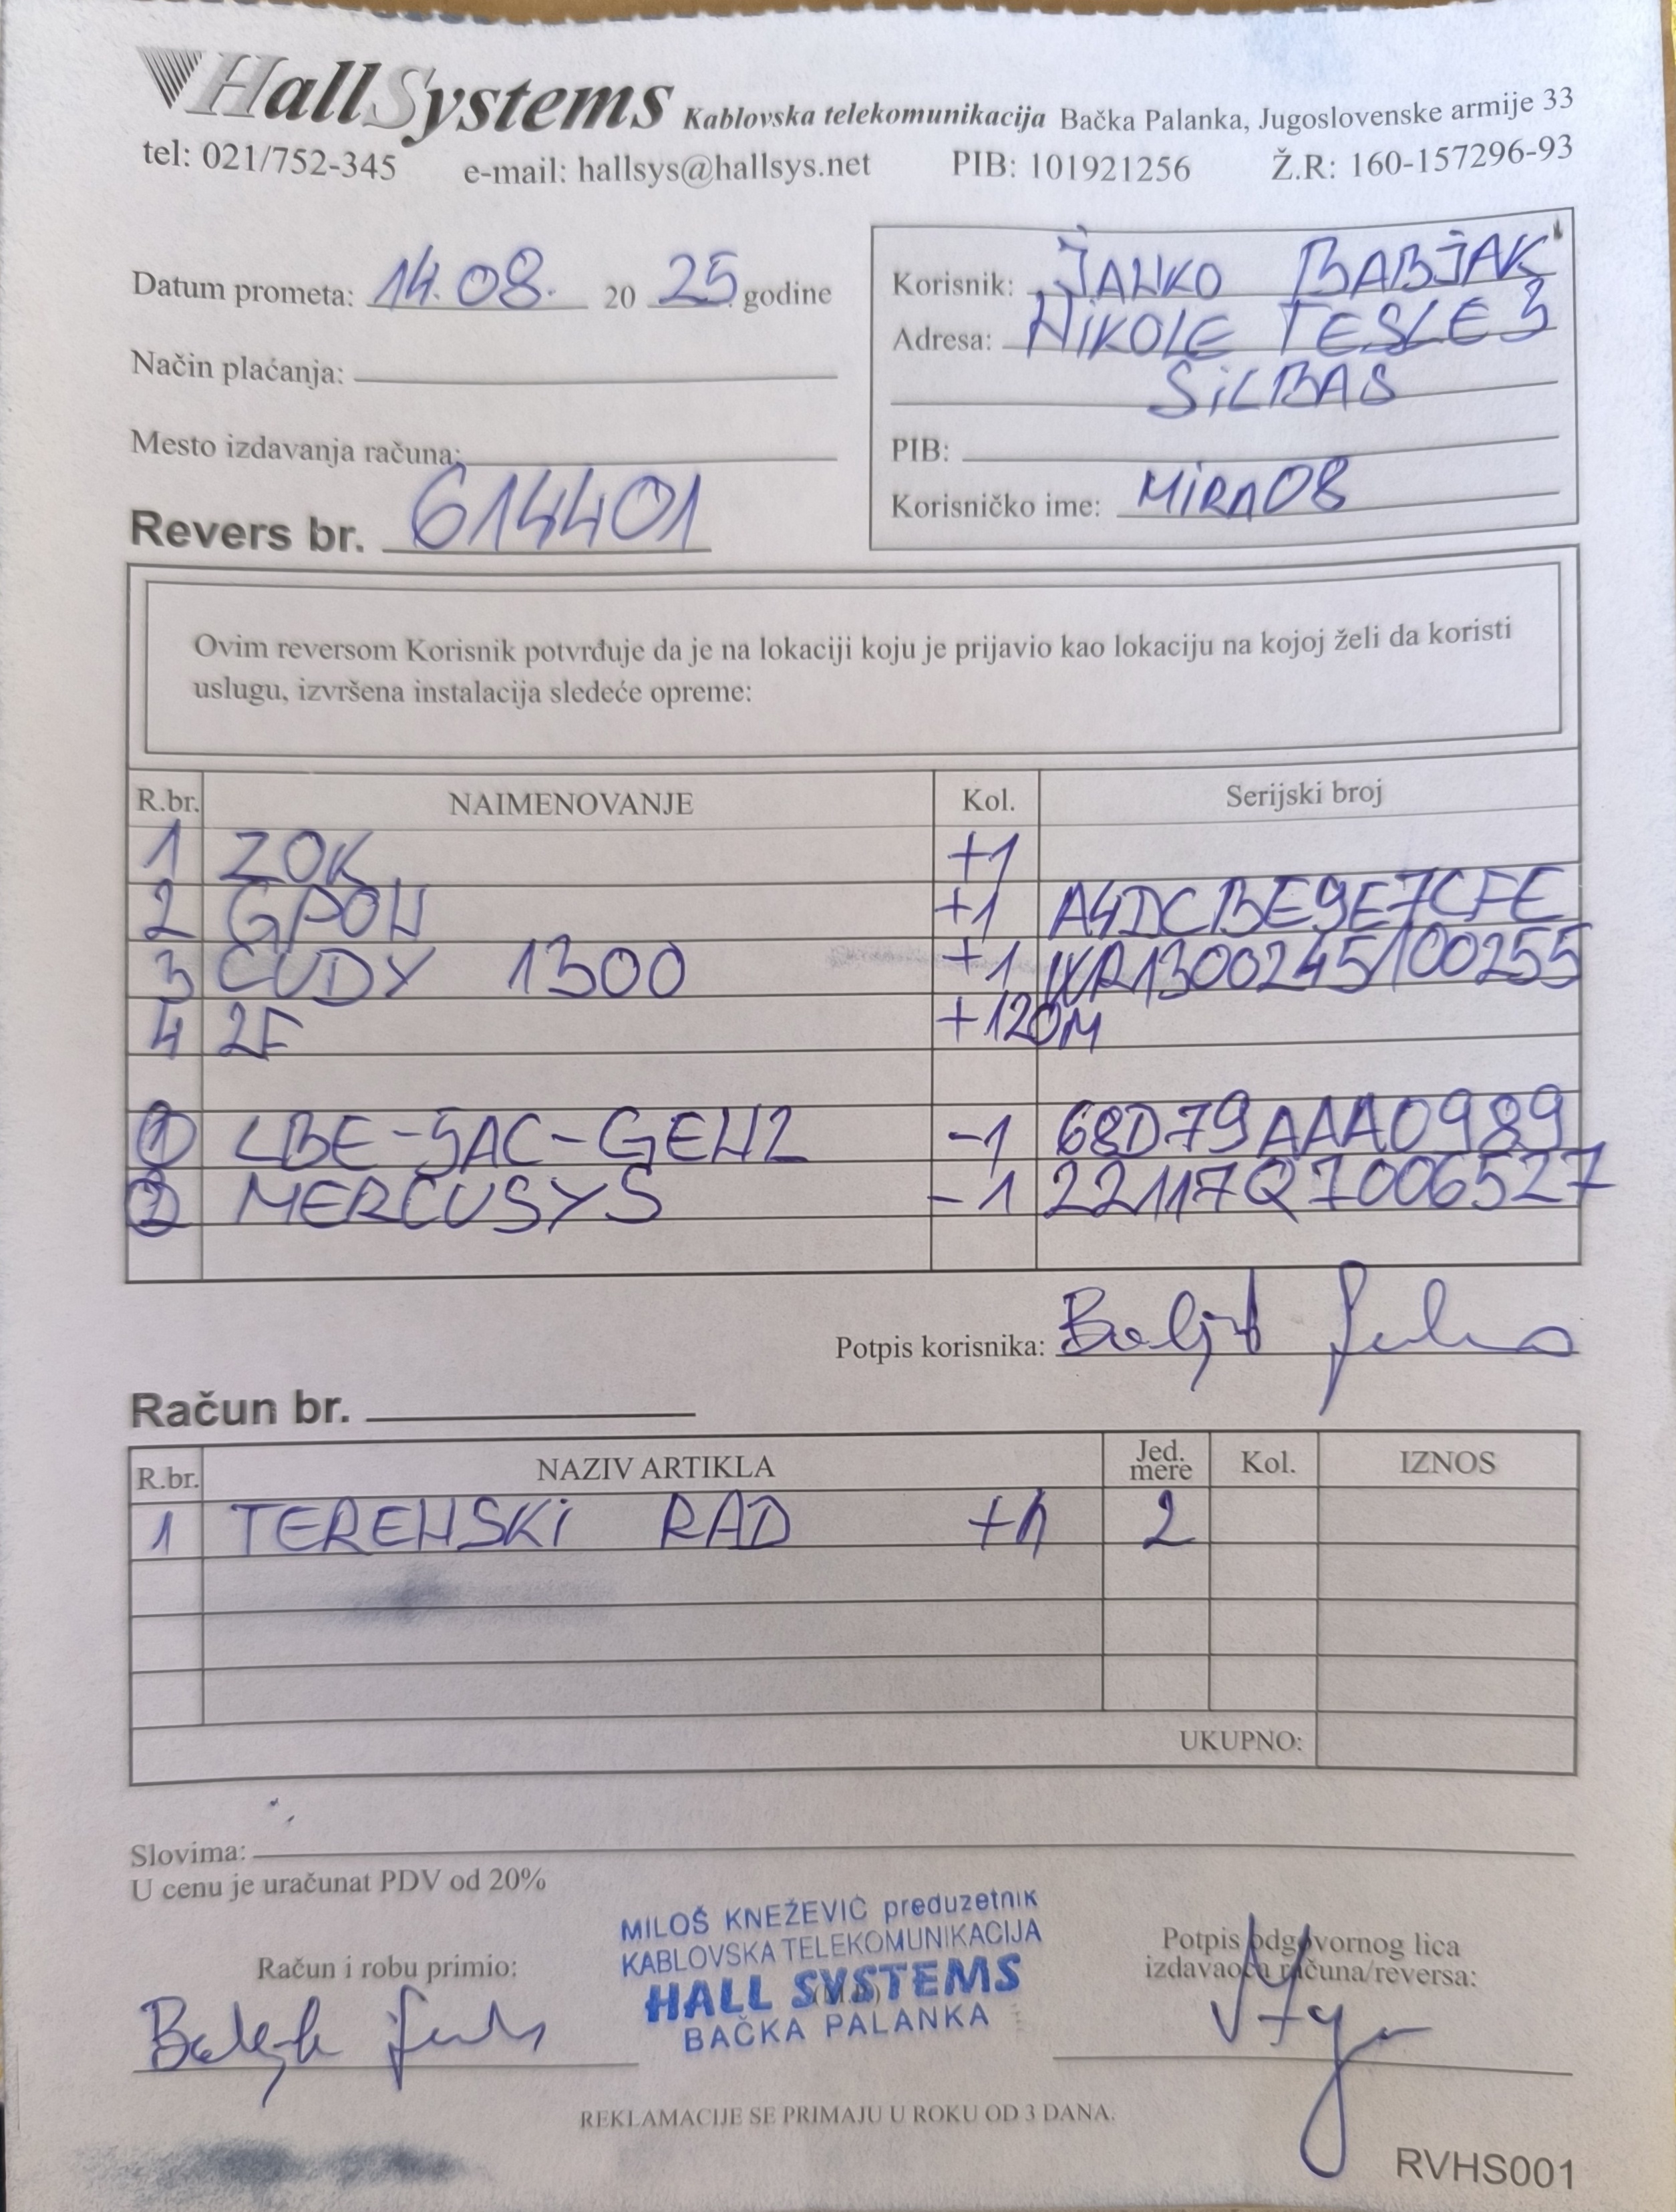 HallSystems Kablovska telekomunikacija Bačka Palanka, Jugoslovenske armije 33
tel: 021/752-345 e-mail: hallsys@hallsys.net PIB: 101921256 Ž.R: 160-157296-93
Datum prometa: 14.08. 20 25 godine
Način plaćanja:
Mesto izdavanja računa:
Revers br. 614401
Korisnik: JANKO BABJAK
Adresa: NIKOLE TESLE 3
SILBAŠ
PIB:
Korisničko ime: MIRA08
Ovim reversom Korisnik potvrđuje da je na lokaciji koju je prijavio kao lokaciju na kojoj želi da koristi
uslugu, izvršena instalacija sledeće opreme:
R.br. NAIMENOVANJE Kol. Serijski broj
1 ZOK +1
2 GPON +1 A4DCBE9E7CFE
3 CUDY 1300 +1 WR1300245100255
4 2F +120M
1 LBE-5AC-GEN2 -1 68D79AAA0989
2 MERCUSYS -1 22117Q7006527
Potpis korisnika:
Račun br.
R.br. NAZIV ARTIKLA Jed. mere Kol. IZNOS
1 TERENSKI RAD +h 2
UKUPNO:
Slovima:
U cenu je uračunat PDV od 20%
Račun i robu primio:
MILOŠ KNEŽEVIĆ preduzetnik
KABLOVSKA TELEKOMUNIKACIJA
HALL SYSTEMS
BAČKA PALANKA
(M.P.)
Potpis odgovornog lica
izdavaoca računa/reversa:
REKLAMACIJE SE PRIMAJU U ROKU OD 3 DANA.
RVHS001